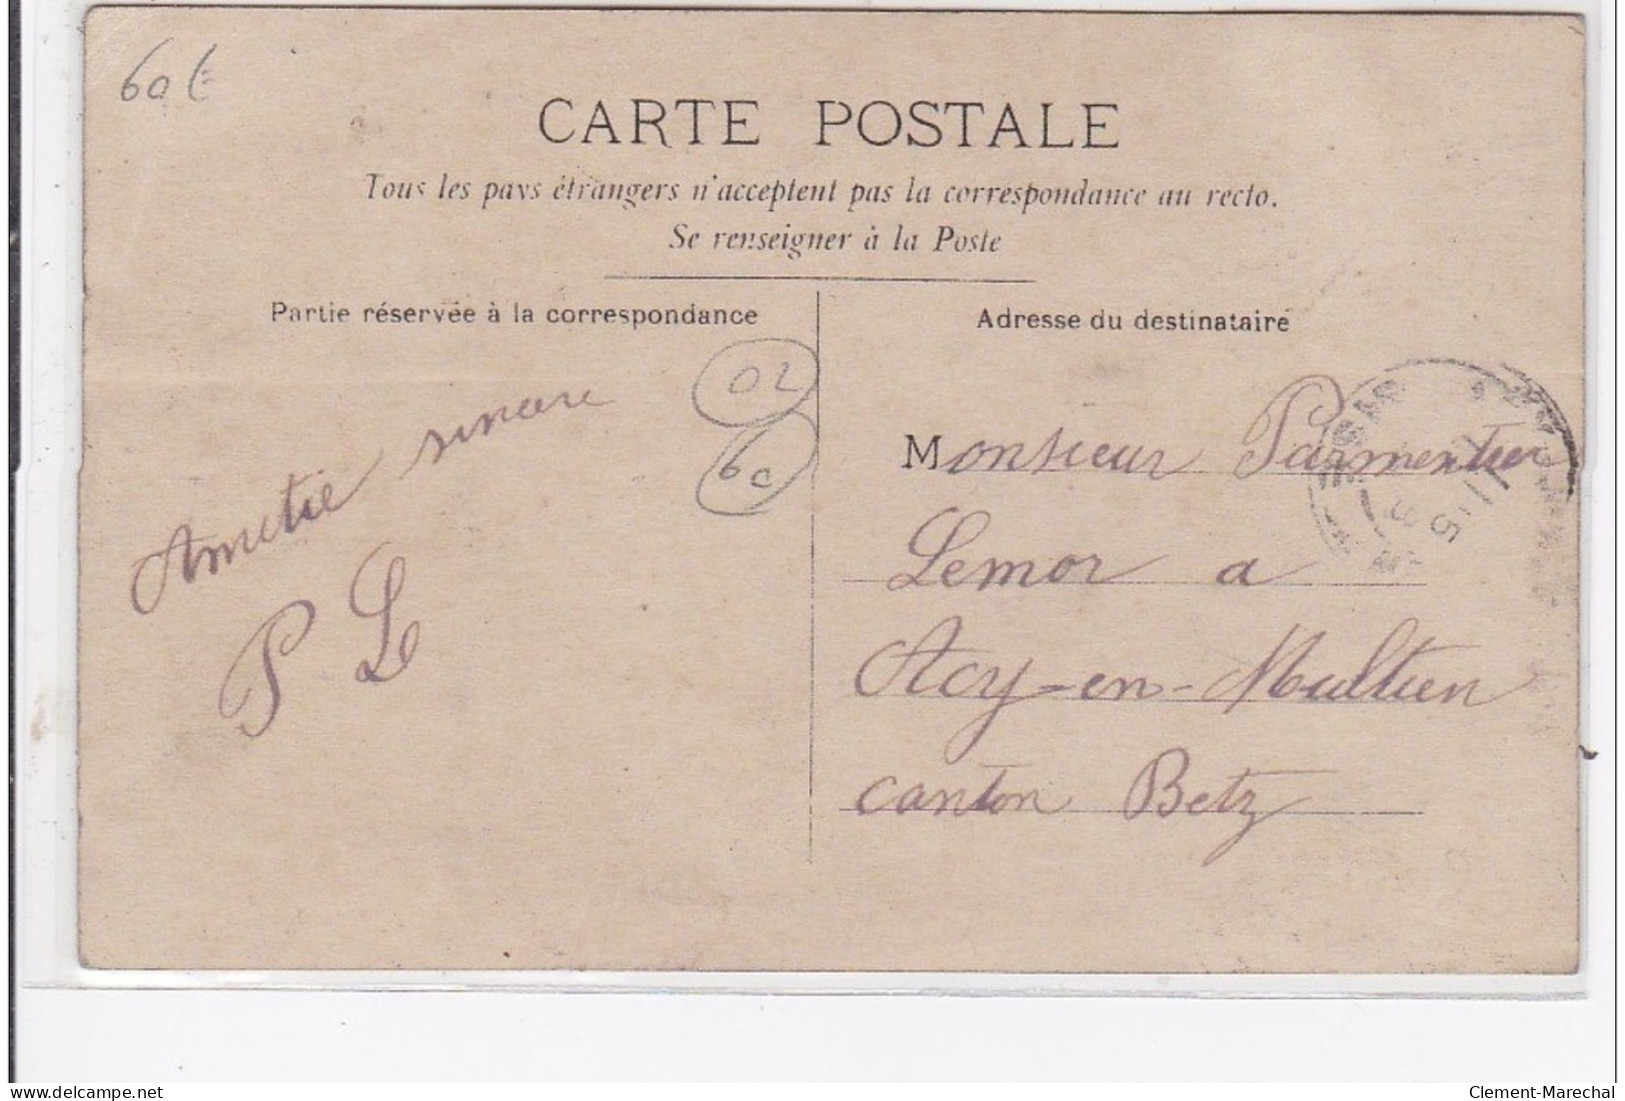 60€
CARTE POSTALE
Tous les pays étrangers n'acceptent pas la correspondance au recto.
Se renseigner à la Poste
Partie réservée à la correspondance
Adresse du destinataire
02
60
Amitié sincère
P L
Monsieur Parmentier
Lemor a
Acy-en-Multien
canton Betz
delcampe.net
Clement-Marechal